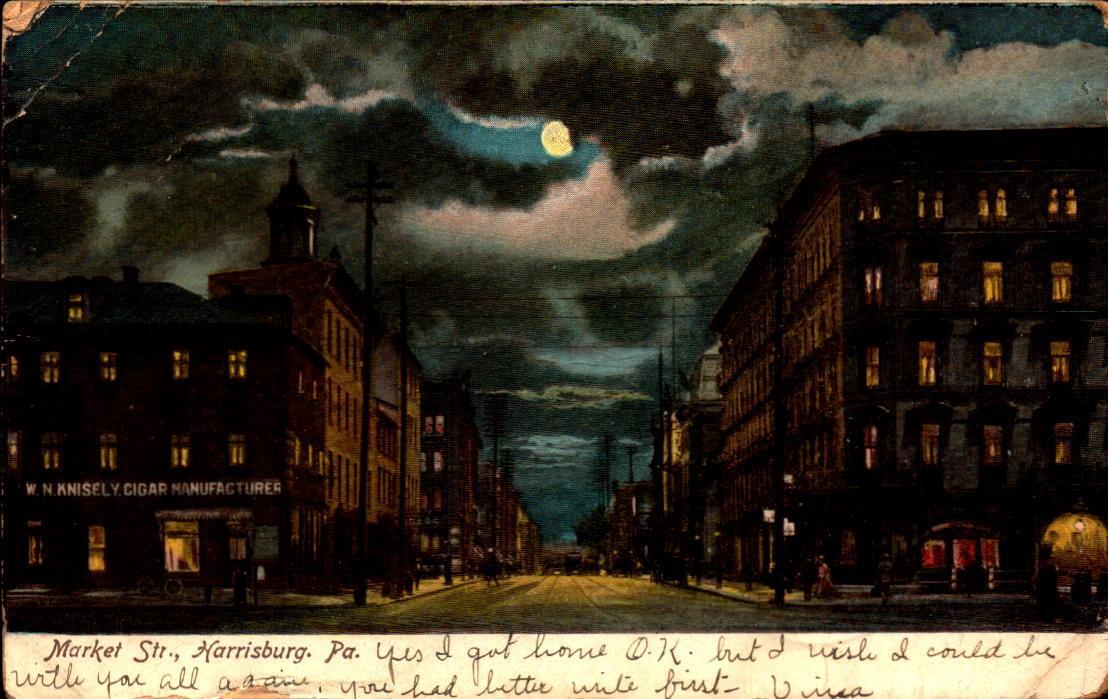 W. N. KNISELY. CIGAR MANUFACTURER
Market Str., Harrisburg. Pa. Yes I got home O.K. but I wish I could be
with you all again, you had better write first-